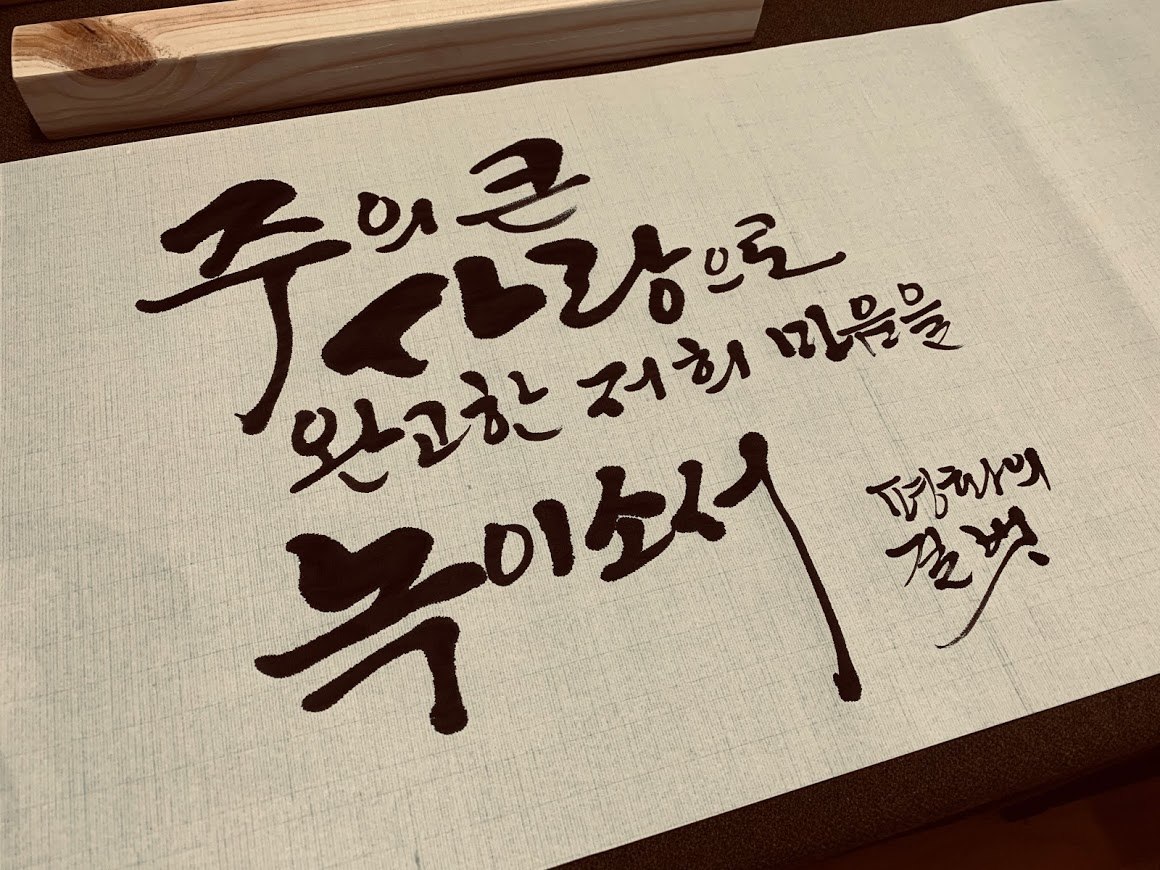 주의 큰
사랑으로
완고한 저희 마음을
녹이소서
평화의
길벗